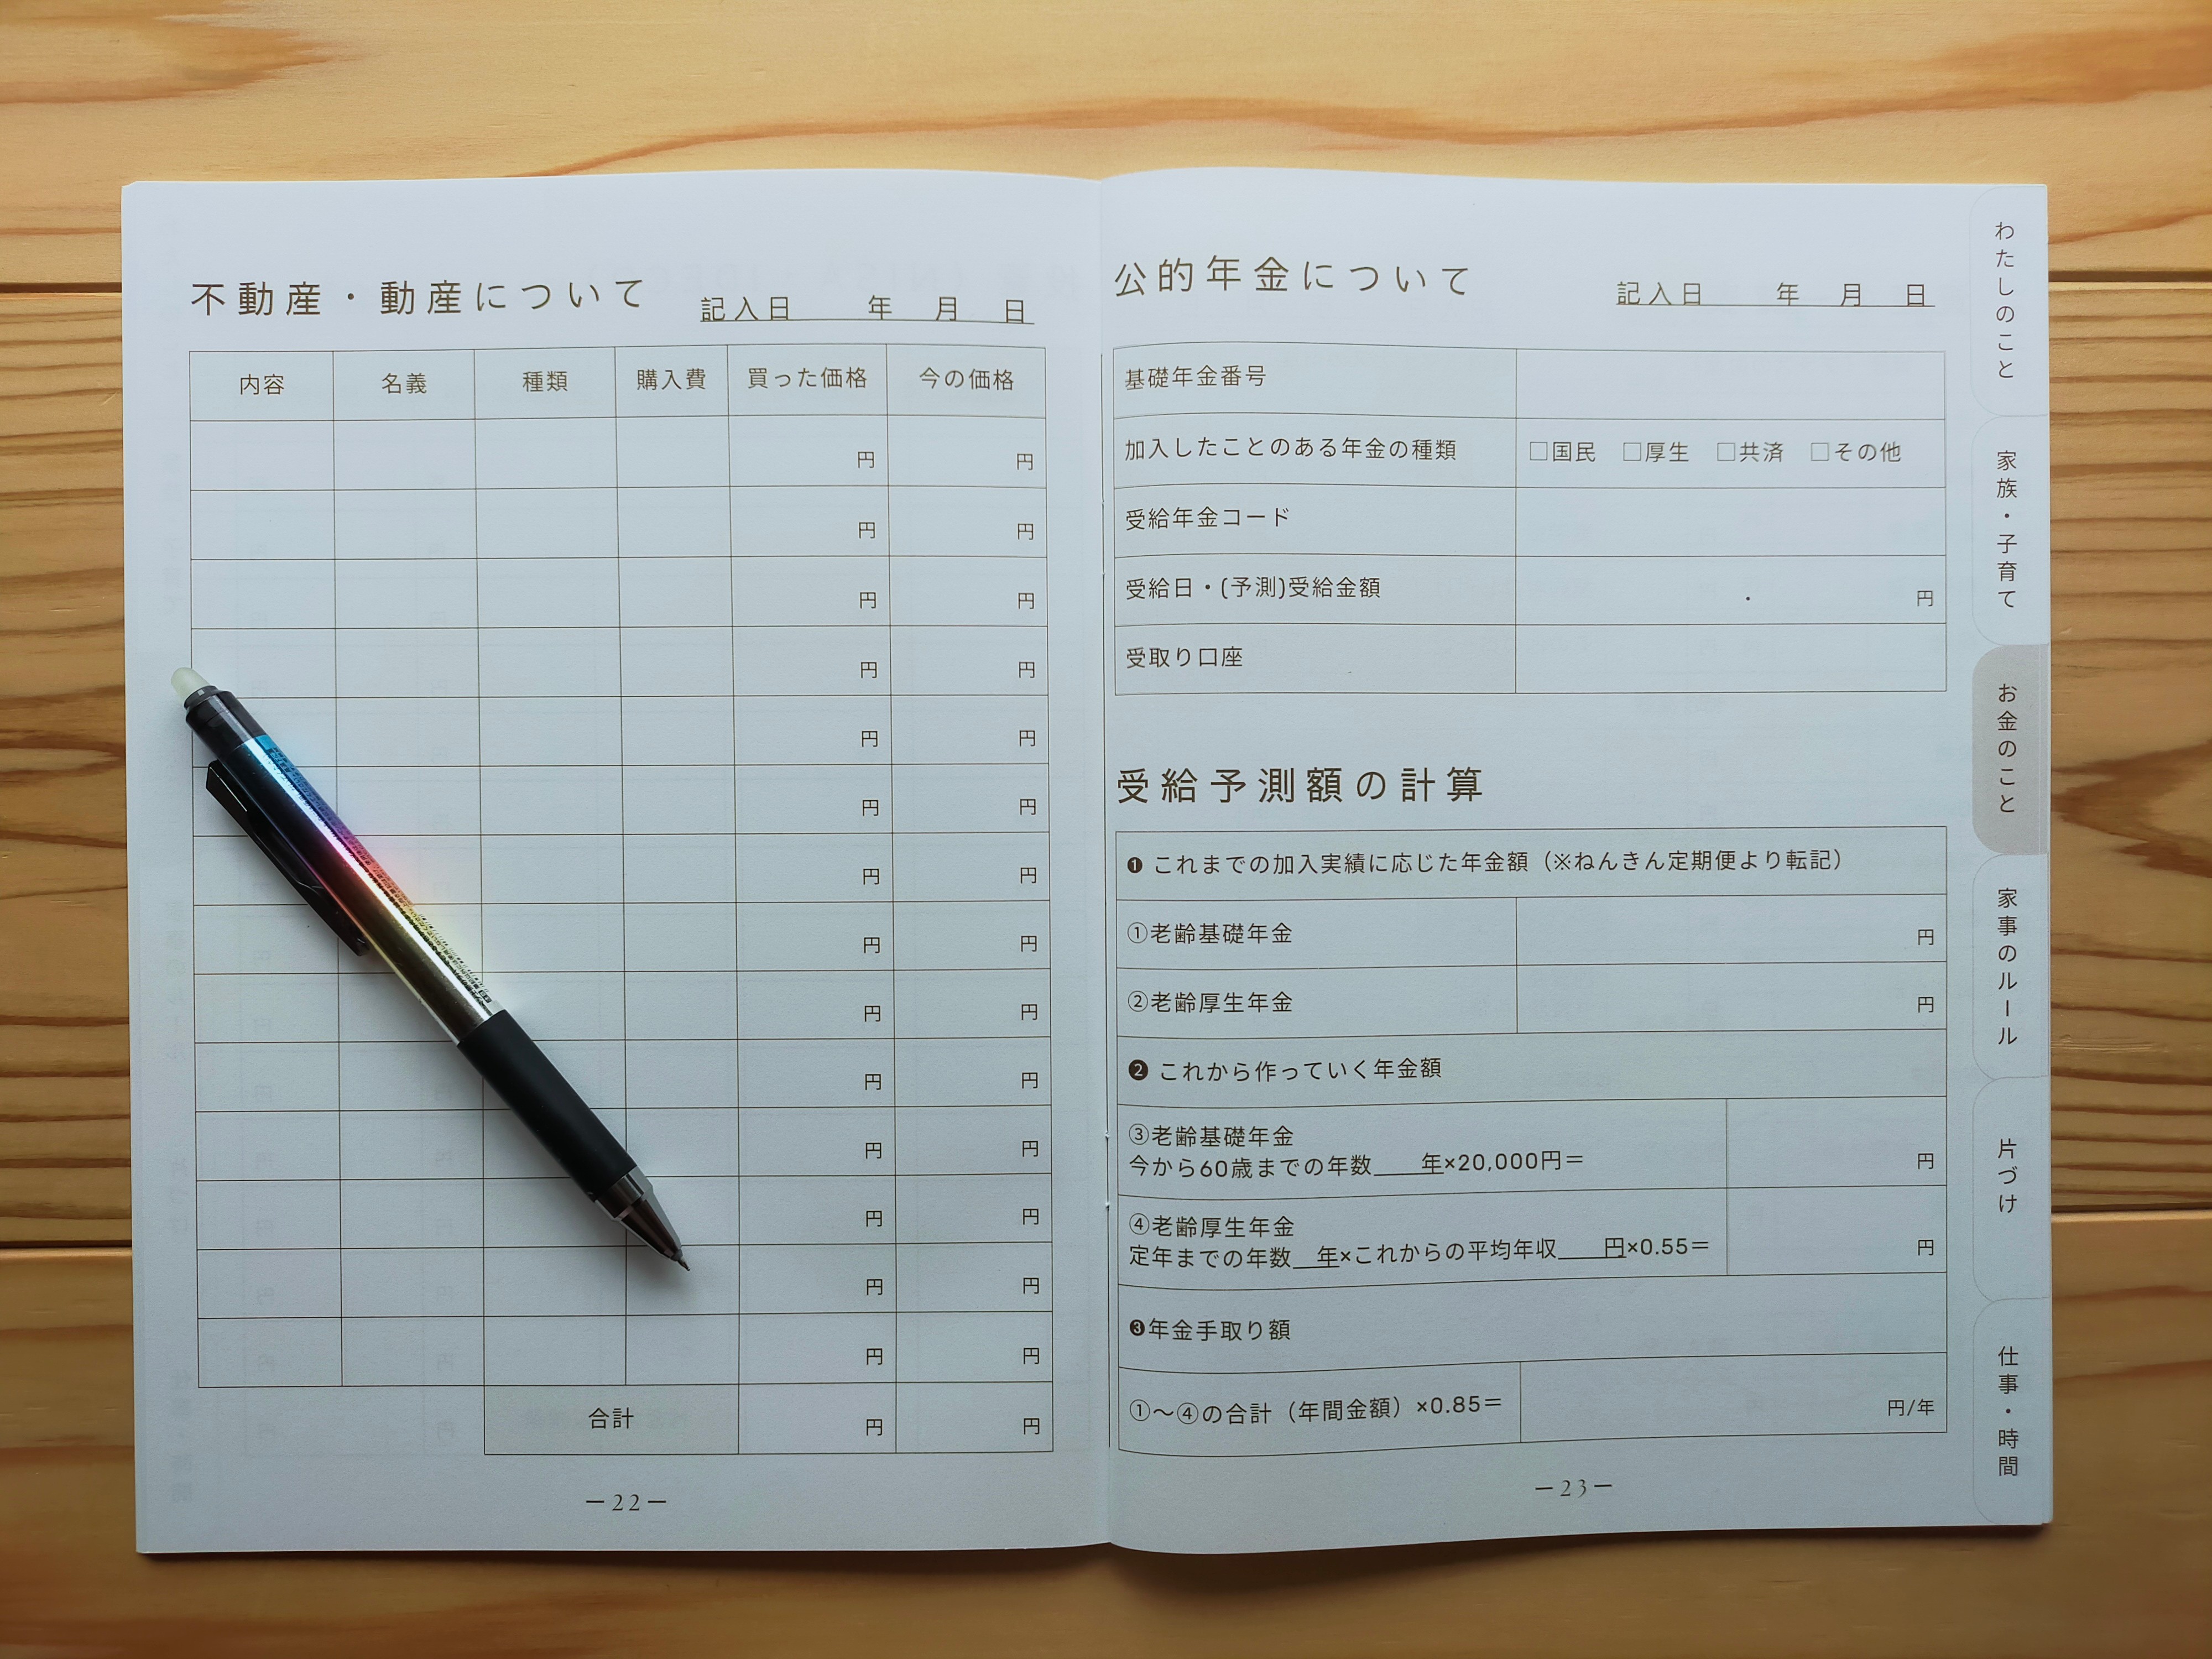 不動産・動産について
記入日 年 月 日
内容 名義 種類 購入費 買った価格 今の価格
円 円
円 円
円 円
円 円
円 円
円 円
円 円
円 円
円 円
円 円
円 円
円 円
円 円
円 円
合計 円 円
ー22ー
公的年金について
記入日 年 月 日
基礎年金番号
加入したことのある年金の種類 □国民 □厚生 □共済 □その他
受給年金コード
受給日・(予測)受給金額 ・ 円
受取り口座
受給予測額の計算
❶ これまでの加入実績に応じた年金額（※ねんきん定期便より転記）
①老齢基礎年金 円
②老齢厚生年金 円
❷ これから作っていく年金額
③老齢基礎年金
今から60歳までの年数____年×20,000円＝ 円
④老齢厚生年金
定年までの年数__年×これからの平均年収____円×0.55＝ 円
❸年金手取り額
①〜④の合計（年間金額）×0.85＝ 円/年
ー23ー
わたしのこと
家族・子育て
お金のこと
家事のルール
片づけ
仕事・時間